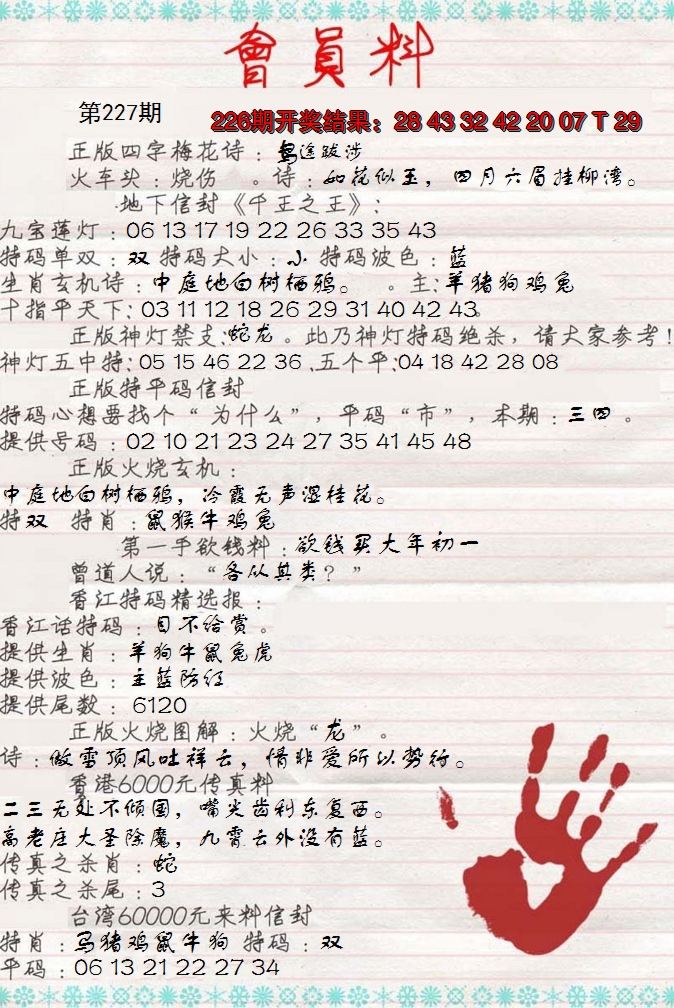 會員料
第227期
226期开奖结果：28 43 32 42 20 07 T 29
正版四字梅花诗：鸳途跋涉
火车头：烧伤 。诗：如花似玉，四月六眉挂柳湾。
地下信封《千王之王》：
九宝莲灯：06 13 17 19 22 26 33 35 43
特码单双：双 特码大小：小 特码波色：蓝
生肖玄机诗：中庭地白树栖鸦。 。主：羊猪狗鸡兔
十指平天下：03 11 12 18 26 29 31 40 42 43。
正版神灯禁支：蛇龙。此乃神灯特码绝杀，请大家参考！
神灯五中特：05 15 46 22 36 .五个平：04 18 42 28 08
正版特平码信封
特码心想要找个“为什么”，平码“市”，本期：三四。
提供号码：02 10 21 23 24 27 35 41 45 48
正版火烧玄机：
中庭地白树栖鸦，冷霞无声湿桂花。
特双 特肖：鼠猴牛鸡兔
第一手欲钱料：欲钱买大年初一
曾道人说：“各从其类？”
香江特码精选报：
香江话特码：目不给赏。
提供生肖：羊狗牛鼠兔虎
提供波色：主蓝防红
提供尾数：6120
正版火烧图解：火烧“龙”。
诗：傲雪顶风吐祥云，情非爱所以势行。
香港6000元传真料
二三无处不倾国，嘴尖齿利东复西。
高老庄大圣除魔，九霄云外没有蓝。
传真之杀肖：蛇
传真之杀尾：3
台湾60000元来料信封
特肖：马猪鸡鼠牛狗 特码：双
平码：06 13 21 22 27 34